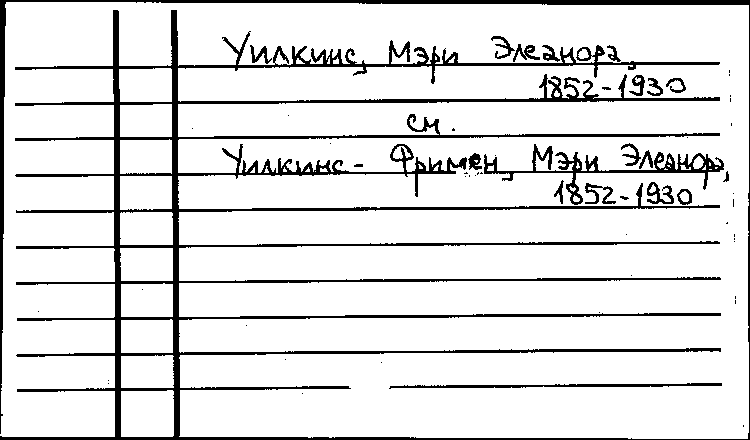 Уилкинс, Мэри Элеанора,
1852-1930
см.
Уилкинс - Фримен, Мэри Элеанора,
1852-1930